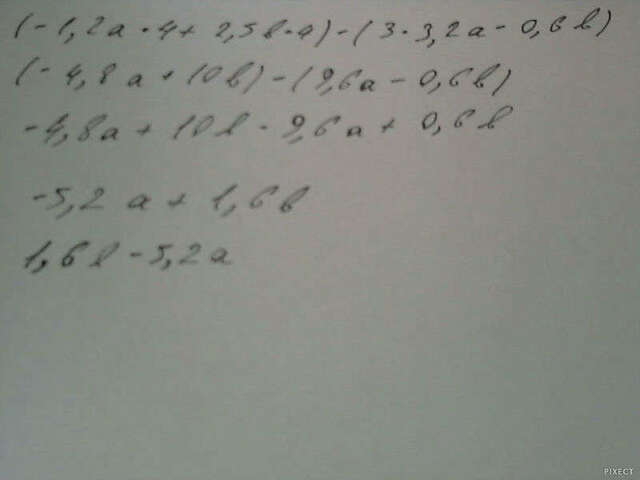 (-1,2a·4+2,5b·4)-(3·3,2a-0,6b)
(-4,8a+10b)-(9,6a-0,6b)
-4,8a+10b-9,6a+0,6b
-5,2a+1,6b
1,6b-5,2a
PIXECT